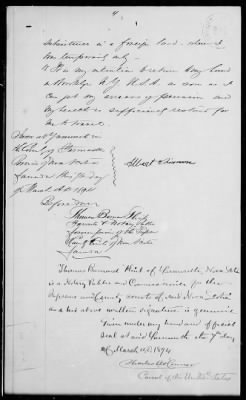 4
subsistence in a foreign land where I
am temporarily only.
4. It is my intention to return to my land
at Brooklyn N.Y. U.S.A. as soon as I
can get my arrears of pension and
my health is sufficiently restored for
me to travel.
Sworn at Yarmouth in
the County of Yarmouth
Province of Nova Scotia
Canada this 7th day
of March A.D. 1894
Albert
Before me
Thomas Barnard Flint
Notary Public
Commissioner of the Supreme
Court of Nova Scotia
Canada
Thomas Barnard Flint of Yarmouth, Nova Scotia
is a Notary Public and Commissioner for the
Supreme and County courts of said Nova Scotia
and his above written signature is genuine.
Given under my hand and official
seal at said Yarmouth this 7th day
of March, A.D. 1894
Consul of the United States